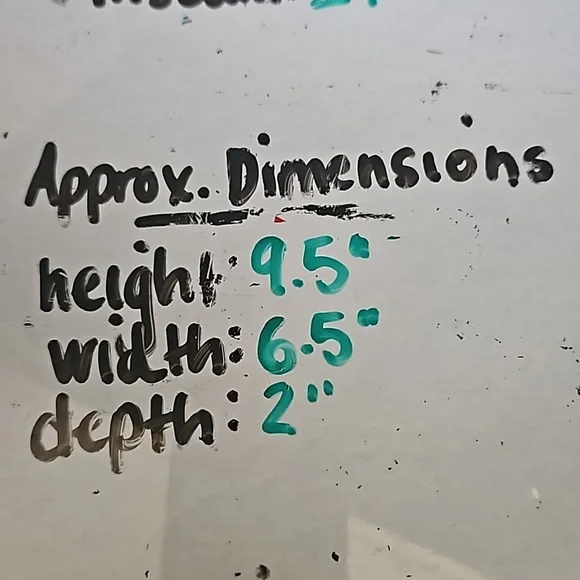 Approx. Dimensions
height: 9.5"
width: 6.5"
depth: 2"